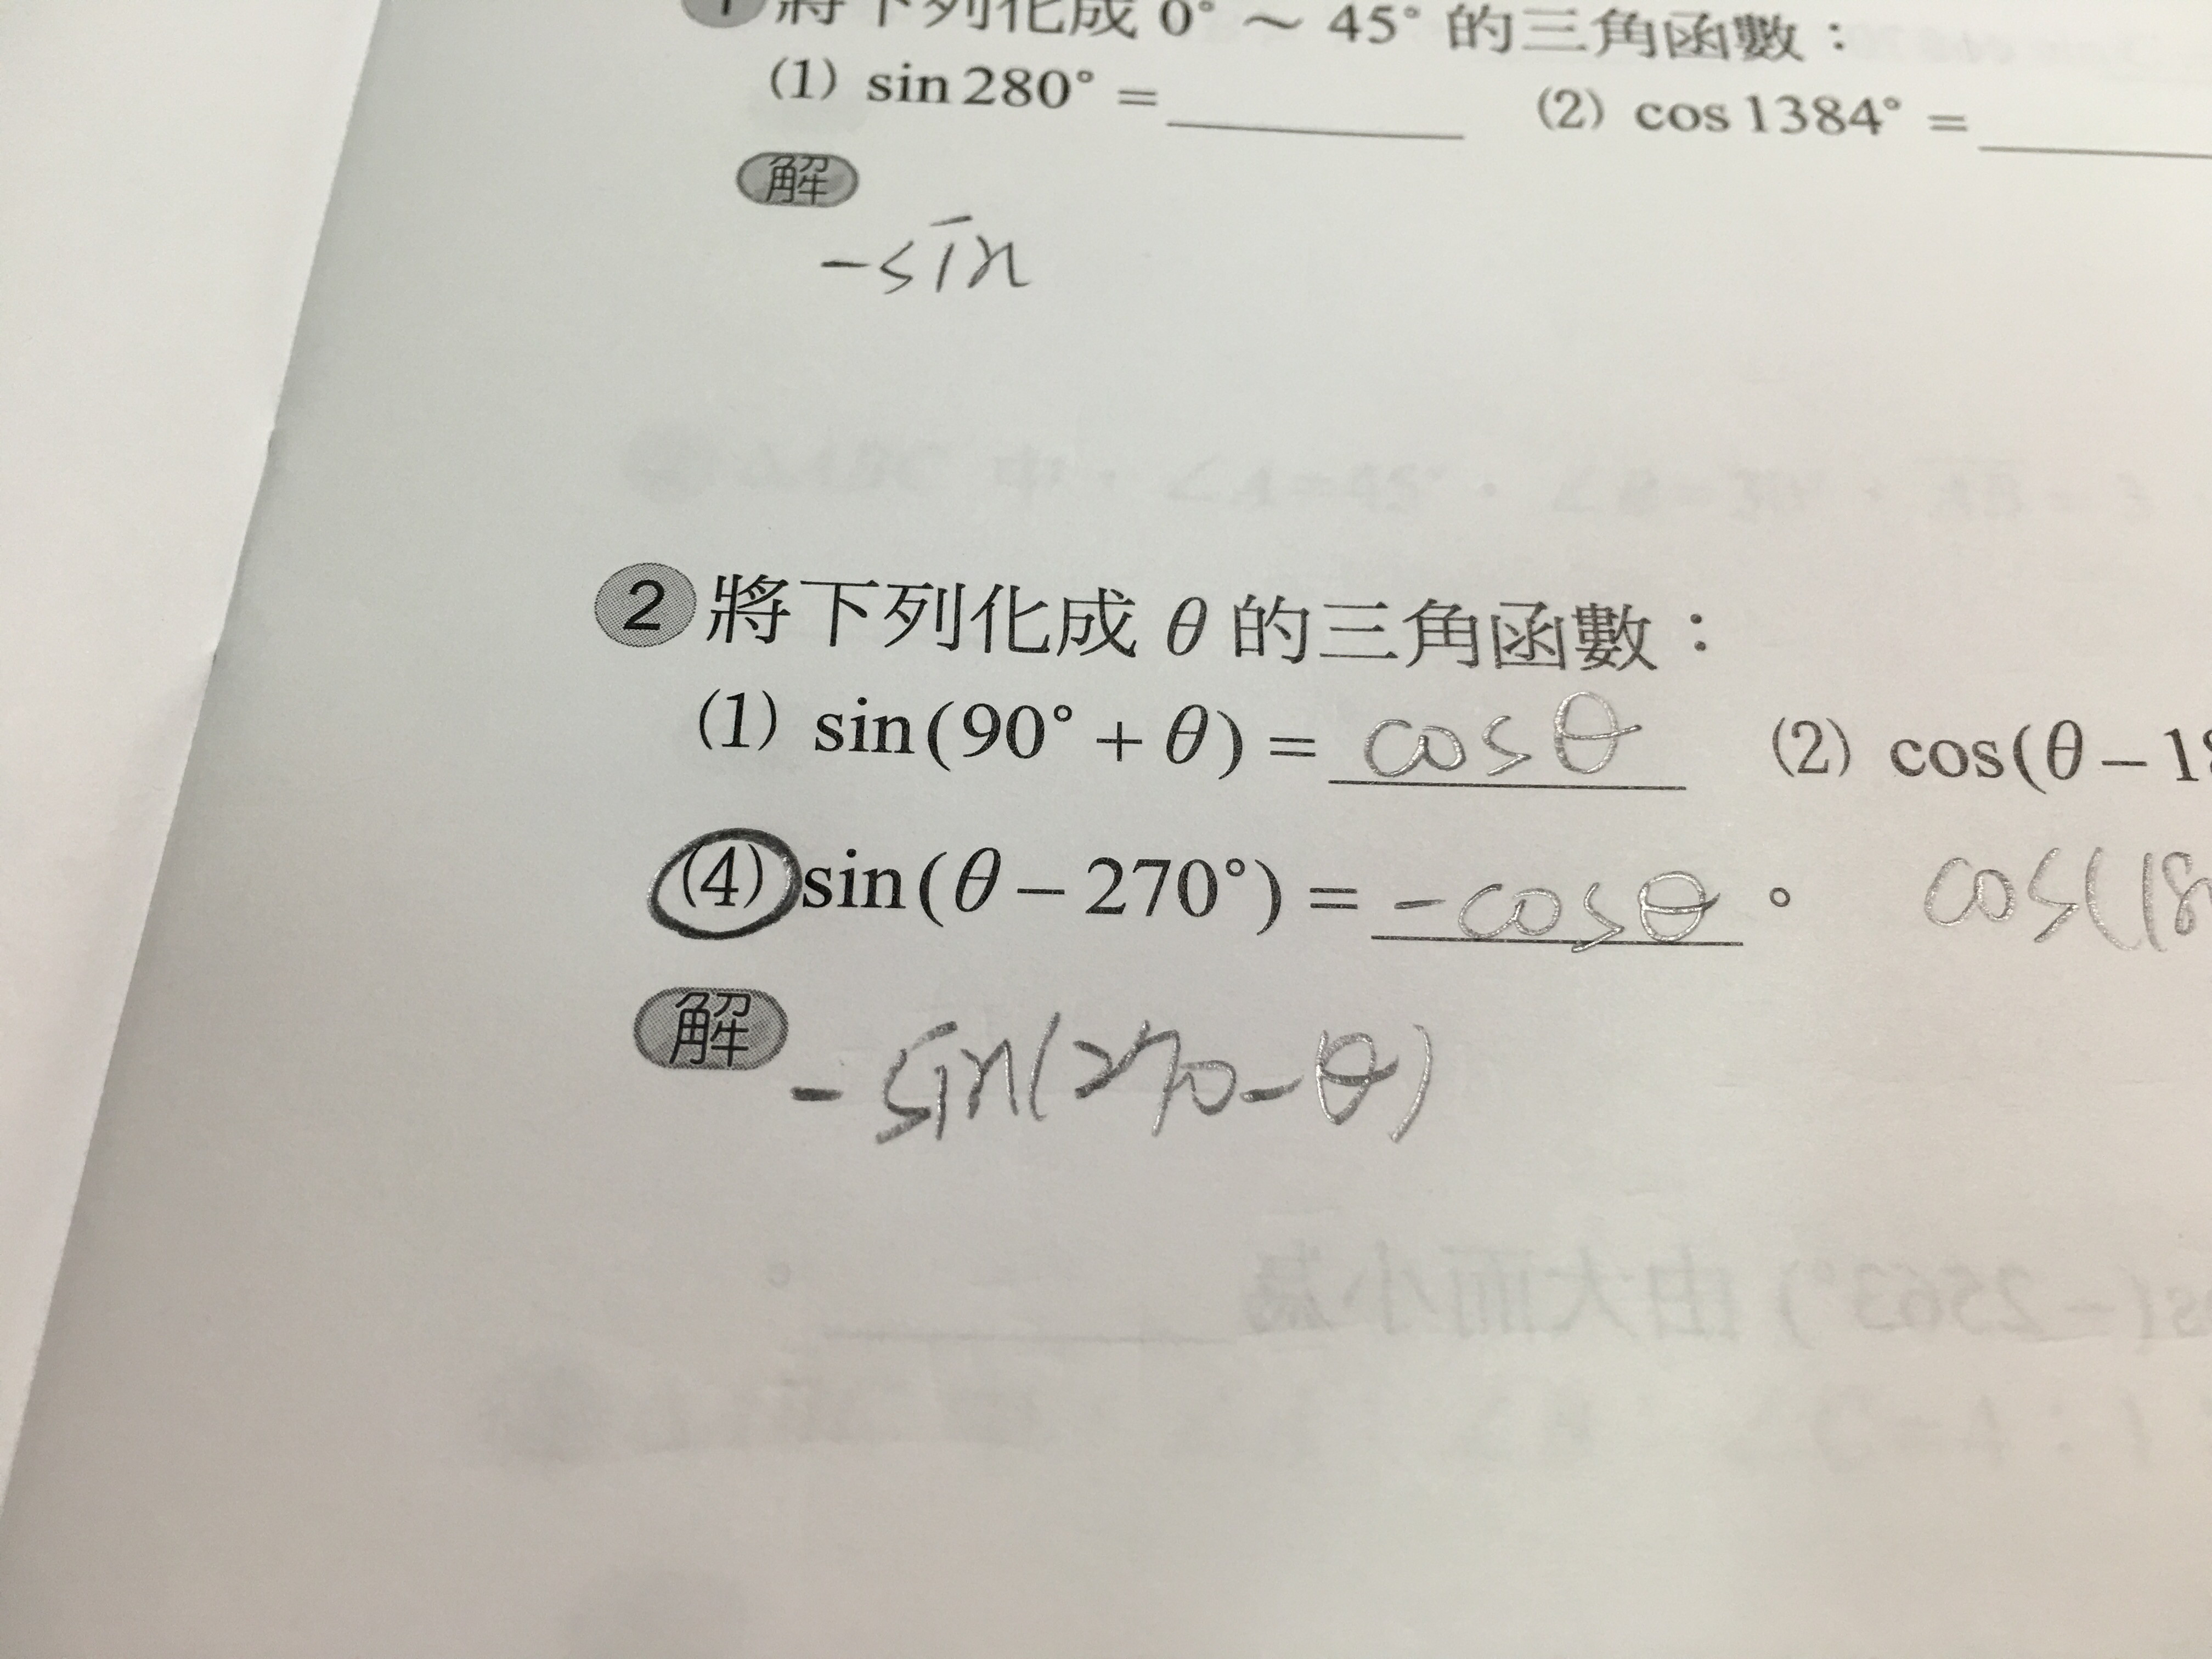 1 將下列化成 0° ~ 45° 的三角函數：
(1) sin 280° = ______ (2) cos 1384° = ______
解
-sin
2 將下列化成 θ 的三角函數：
(1) sin(90° + θ) = cosθ (2) cos(θ - 18
(4) sin(θ - 270°) = -cosθ 。 cos(18
解 -sin(270-θ)